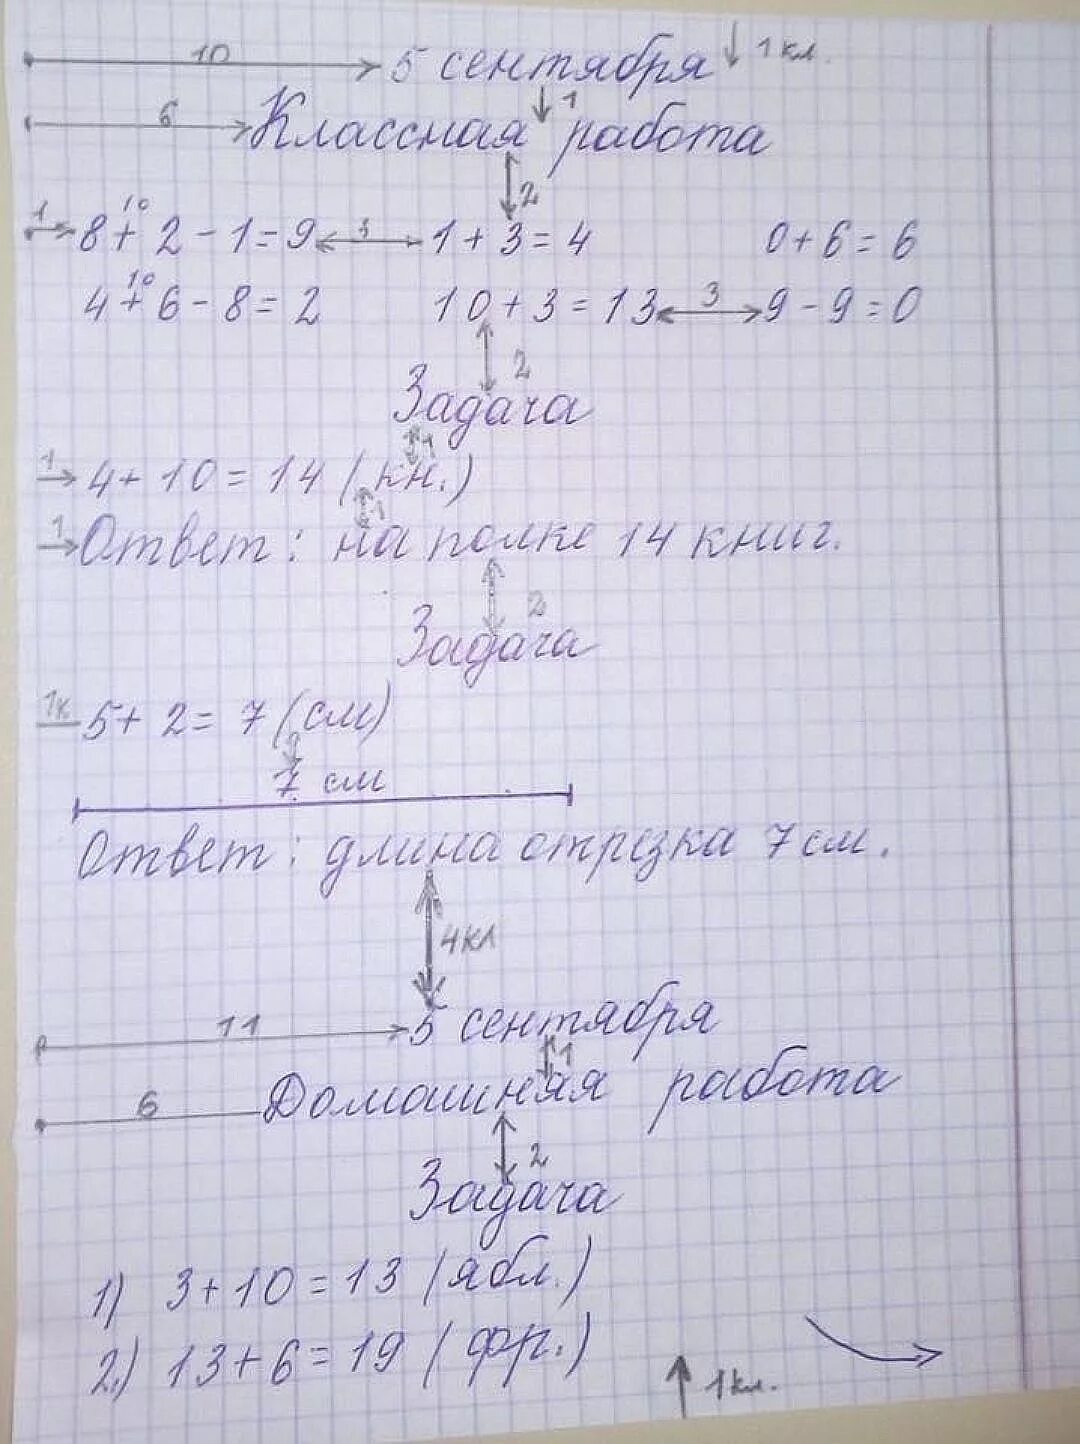 10 5 сентября 1 кл.
6 Классная 1 работа
2
1 10
8 + 2 - 1 = 9 3 1 + 3 = 4 0 + 6 = 6
10
4 + 6 - 8 = 2 10 + 3 = 13 3 9 - 9 = 0
2
Задача
1
1 4 + 10 = 14 (кн.)
1
1 Ответ: на полке 14 книг.
2
Задача
1к 5 + 2 = 7 (см)
7 см
Ответ: длина отрезка 7 см.
4 кл
11 5 сентября
1
6 Домашняя работа
2
Задача
1) 3 + 10 = 13 (ябл.)
2.) 13 + 6 = 19 (фр.)
1 кл.